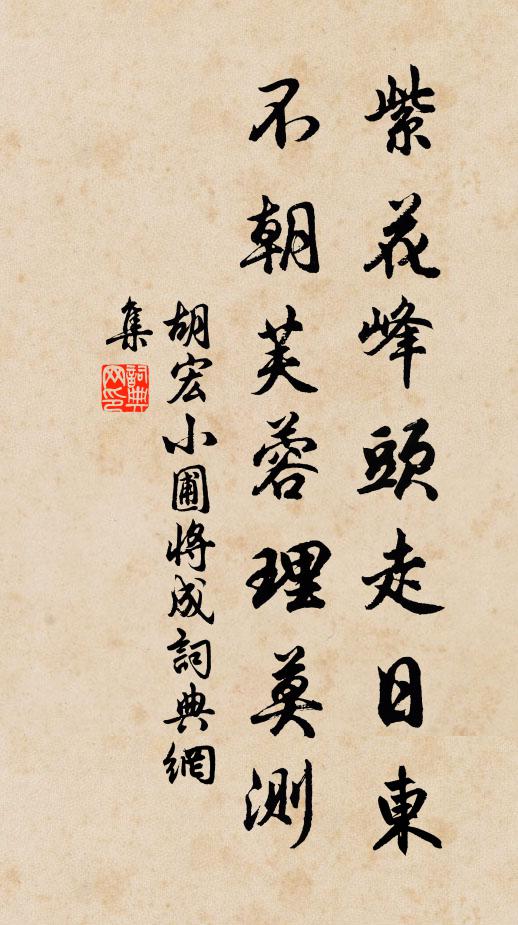 紫花峰頭走日東
不朝芙蓉理莫測
胡宏小圃將成詞典網
集
詞典
网印